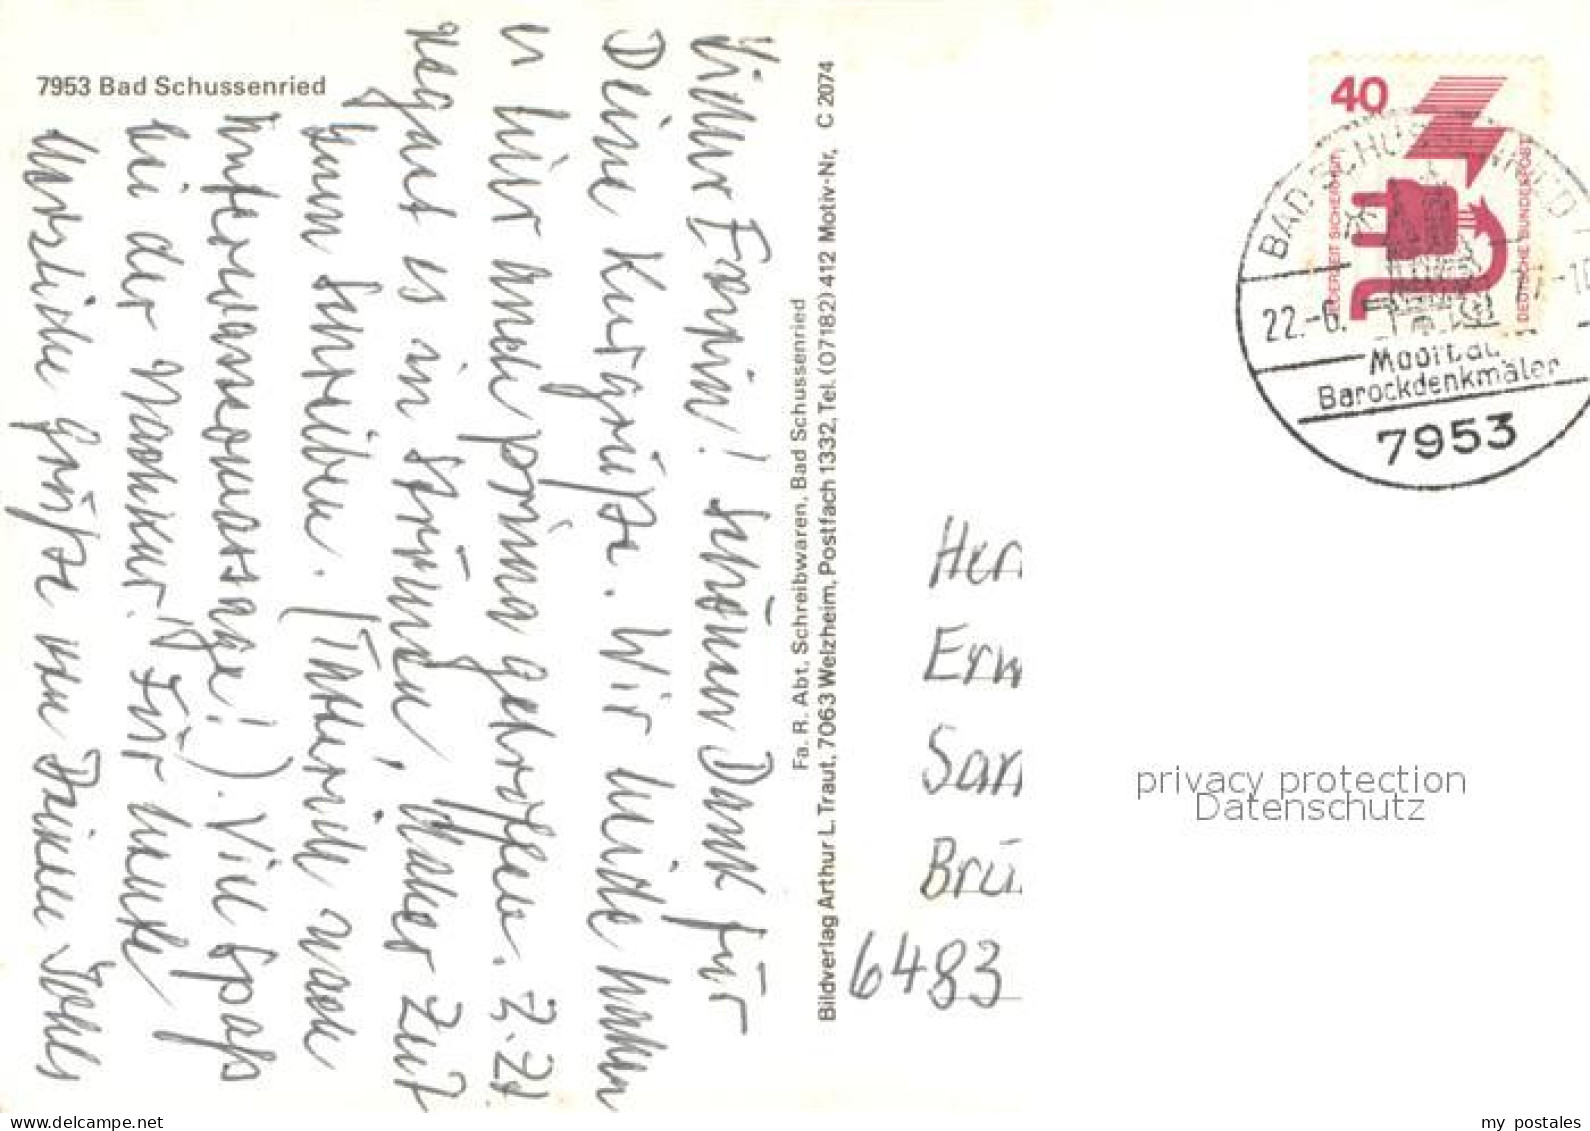 7953 Bad Schussenried
Lieber Erwin! Schönen Dank für
Deine Kurgrüße. Wir beide haben
es hier auch prima getroffen. Z. Zt.
regnet es in Strömen, daher Zeit
zum Schreiben. (Tatterich nach
Unterwassermassage!). Viel Spaß
bei der Nachkur! Für heute
herzliche Grüße von Deinem
Fa. R. Abt, Schreibwaren, Bad Schussenried
Bildverlag Arthur L. Traut, 7063 Welzheim, Postfach 1332, Tel. (07182) 412 Motiv-Nr. C 2074
40
JEDERZEIT SICHERHEIT
DEUTSCHE BUNDESPOST
BAD SCHUSSENRIED 1
22.-6.
Moorbad
Barockdenkmäler
7953
Her
Erw
San
Brü
6483
privacy protection
Datenschutz
my postales